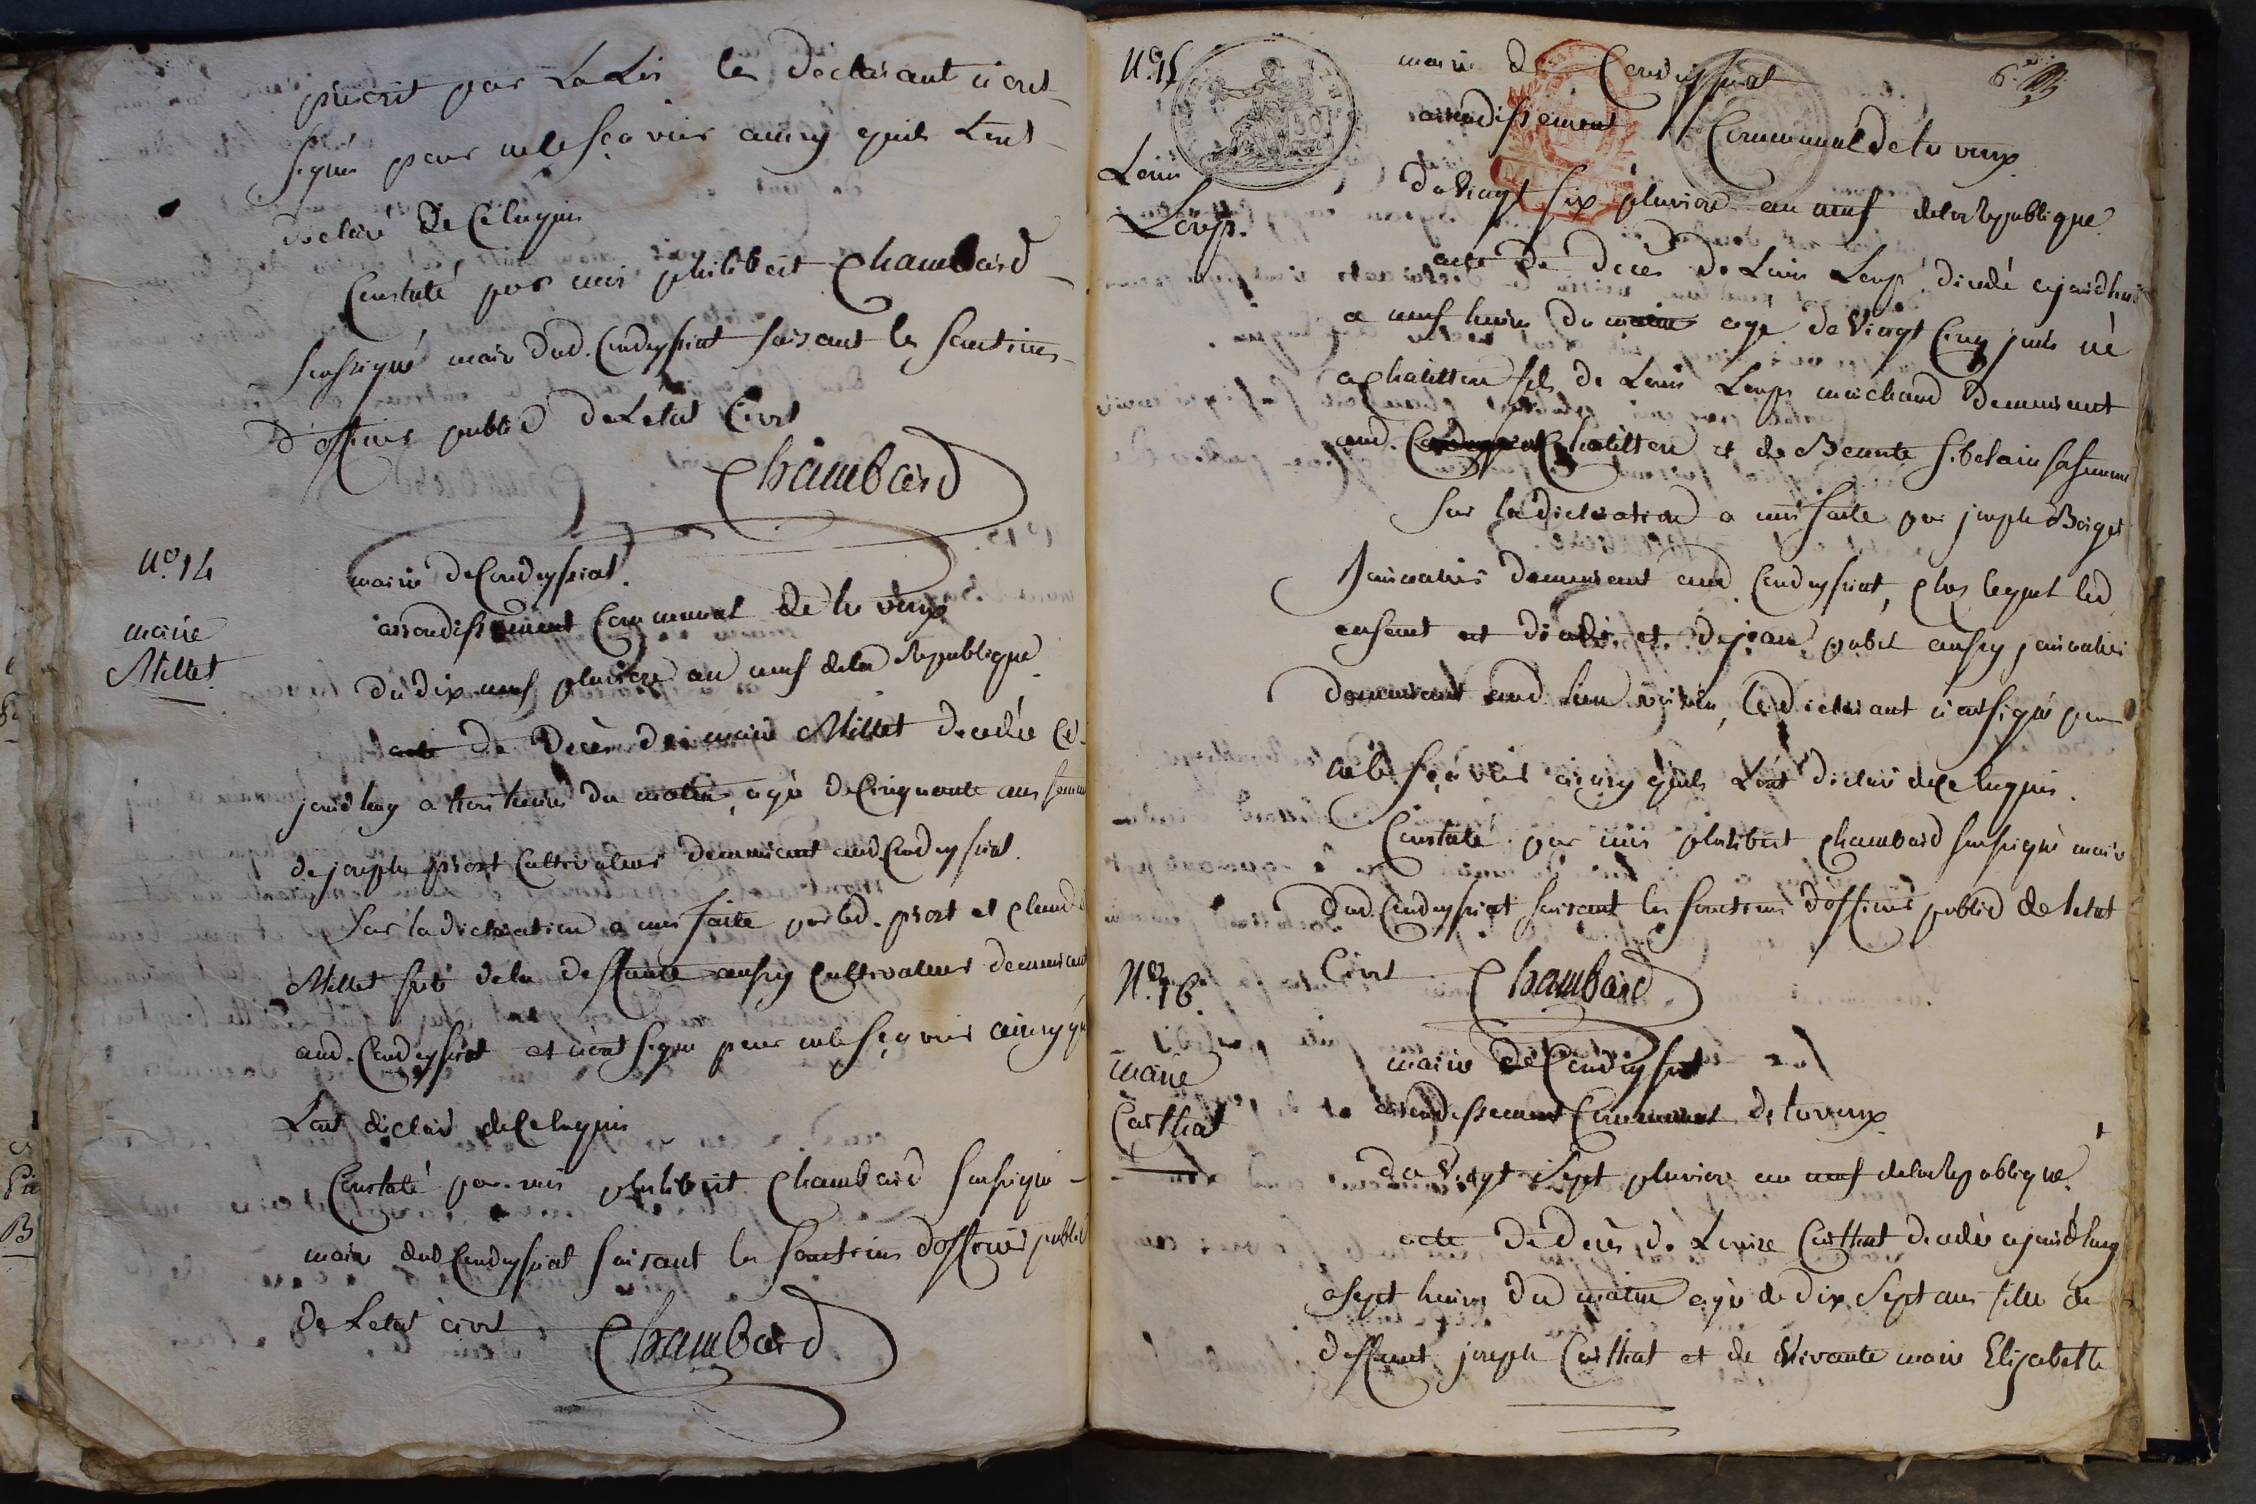 prescrit par La Loi les déclarant n'ont
signés pour ne le sçavoir ainsy quils L'ont
déclaré de Ce Enquis
Constaté par moi philibert Chambard
soussigné maire dud. Condeyssiat faisant les fonctions
d'officier public de L'état Civil
Chambard
N.º 14
marie
Millet.
mairie de Condeyssiat.
arrondissement Communal de trevoux
du dix neuf pluviose an neuf de la Republique.
acte de Decès de marie Millet decedée ce
jourdhuy a trois heures du matin, agée de Cinquante ans femme
de joseph priost Cultivateur demeurant aud Condeyssiat.
Sur la déclaration a moi faite par led. priost et claude
Millet frere de la deffunte aussy Cultivateur demeurant
aud. Condeyssiat et n'ont signé pour ne le sçavoir ainsy qu
L'ont déclaré de Ce enquis
Constaté par moi philibert Chambard soussigné
maire dud Condeyssiat faisant les fonctions d'officier public
de L'état civil
Chambard
N.º 15
Louis
Loup.
mairie de Condeyssiat
arrondissement Communal de trevoux
du Vingt six pluviose an neuf de la Republique
acte de décès de Louis Loup décédé ajourdhui
a neuf heures du matin agé de Vingt Cinq jours né
a chatillon fils de Louis Loup marchand demeurant
aud. Chatillon et de Benoite sa femme
Sur la déclaration a moi faite par joseph
journalier demeurant aud Condeyssiat, chez lequel led
enfant est décédé, et de jean aussy journalier
demeurant aud lieu voisin, les déclarant n'ont signé pour
ne le sçavoir ainsy quils L'ont déclaré de Ce enquis.
Constaté par moi philibert Chambard soussigné maire
dud. Condeyssiat faisant les fonctions d'officier public de l'état
Civil
Chambard
N.º 16.
marie
Carthat
mairie de Condeyssiat
arrondissement Communal de trevoux
du Vingt Sept pluviose an neuf de la Republique.
acte de décès de Louise Carthat decedée ajourdhuy
a sept heures du matin agée de dix Sept ans fille de
deffunt joseph Carthat et de vivante marie Elizabeth